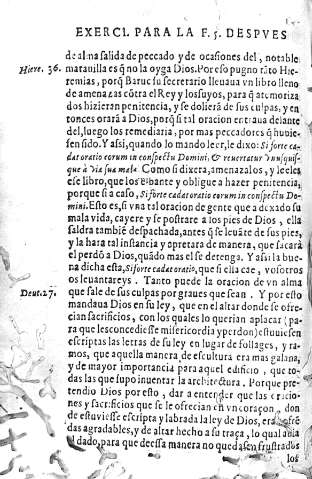 EXERCI. PARA LA F. 5. DESPVES
de alma salida de peccado y de ocasiones del, notable
Hiere. 36. matanilla es q̃ no la oyga Dios. Por eso pugno tãto Hie-
remias, porq̃ Baruc su secretario lleuaua vn libro lleno
de amenazas cõtra el Rey y los suyos, para q̃ atemoriza
dos hizieran penitencia, y se doliera de sus culpas, y en
tonces orara à Dios, porq̃ si tal oracion entraua delante
del, luego los remediaria, por mas peccadores q̃ huuie-
sen sido. Y assi, quando lo mando leer, le dixo: Si forte ca-
dat oratio eorum in conspectu Domini, & reuertatur vnusquis-
que à via sua mala. Como si dixera, amenazalos, y leeles
ese libro, que los espante y obligue a hazer penitencia,
porque si a caso, Si forte cadat oratio eorum in conspectu Do-
mini. Esto es, si vna tal oracion de gente que a dexado su
mala vida, cayere y se postrare a los pies de Dios, ella
saldra tambiẽ despachada, antes q̃ se leuãte de sus pies,
y la hara tal instancia y apretara de manera, que sacarà
el perdõ a Dios, quãdo mas el se detenga. Y assi la bue
na dicha esta, Si forte cadat oratio, que si ella cae, vosotros
os leuantareys. Tanto puede la oracion de vn alma
Deut. 27. que sale de sus culpas por graues que sean. Y por esto
mandaua Dios en su ley, que en el altar donde se ofre-
cian sacrificios, con los quales lo querian aplacar (pa-
ra que les concediesse misericordia y perdon) estuuiesen
escriptas las letras de su ley en lugar de follages, y ra-
mos, que aquella manera de escultura era mas galana,
y de mayor importancia para aquel edificio, que to-
das las que supo inuentar la architectura. Porque pre-
tendio Dios por esto, dar a entender que las oracio-
nes y sacrificios que se le ofrecian en vn coraçon, don
de estuuiesse escripta y labrada la ley de Dios, era ofrẽ
das agradables, y de altar hecho a su traça, lo qual auia
dado, para que dessa manera no quedasen frustrados
los